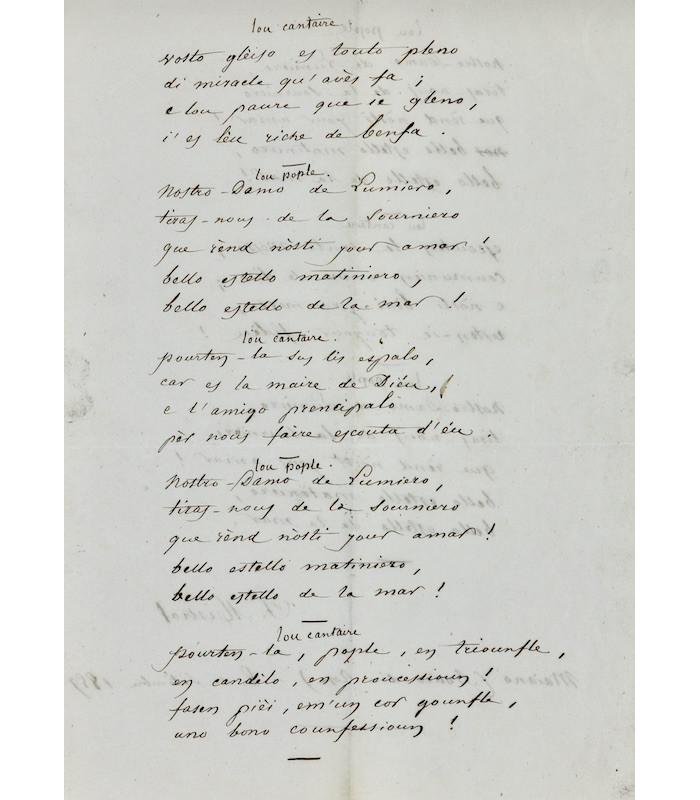 lou cantaire
vosto glèiso es touto pleno
di miracle qu'avès fa ;
e lou paure que ie gleno,
i'es lèu riche de benfa.
lou pople.
Nostro-Damo de Lumiero,
tiras-nous de la sourniero
que rènd nòsti jour amar !
bello estello matiniero,
bello estello de la mar !
lou cantaire.
pourten-la sus lis espalo,
car es la maire de Diéu,
e l'amigo prencipalo
pèr nous faire escouta d'éu.
lou pople.
Nostro-Damo de Lumiero,
tiras-nous de la sourniero
que rènd nòsti jour amar !
bello estello matiniero,
bello estello de la mar !
lou cantaire
pourten-la, pople, en triounfle,
en candèlo, en proucessioun !
fasen pièi, em'un cor gounfle,
uno bono counfessioun !